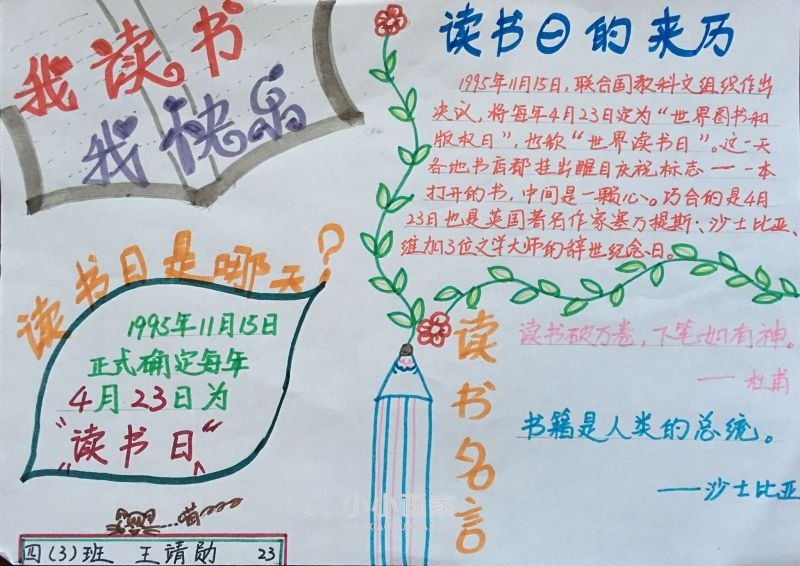 我读书
我快乐
读书日是哪天？
1995年11月15日
正式确定每年
4月23日为
“读书日”
喵
四(3)班 王靖勋 23
读书日的来历
1995年11月15日，联合国教科文组织作出
决议，将每年4月23日定为“世界图书和
版权日”，也称“世界读书日”。这一天
各地书店都挂出醒目庆祝标志——一本
打开的书，中间是一颗心。巧合的是4月
23日也是英国著名作家塞万提斯、沙士比亚、
维加3位文学大师的辞世纪念日。
读书名言
读书破万卷，下笔如有神。
——杜甫
书籍是人类的总统。
——沙士比亚
小小画家